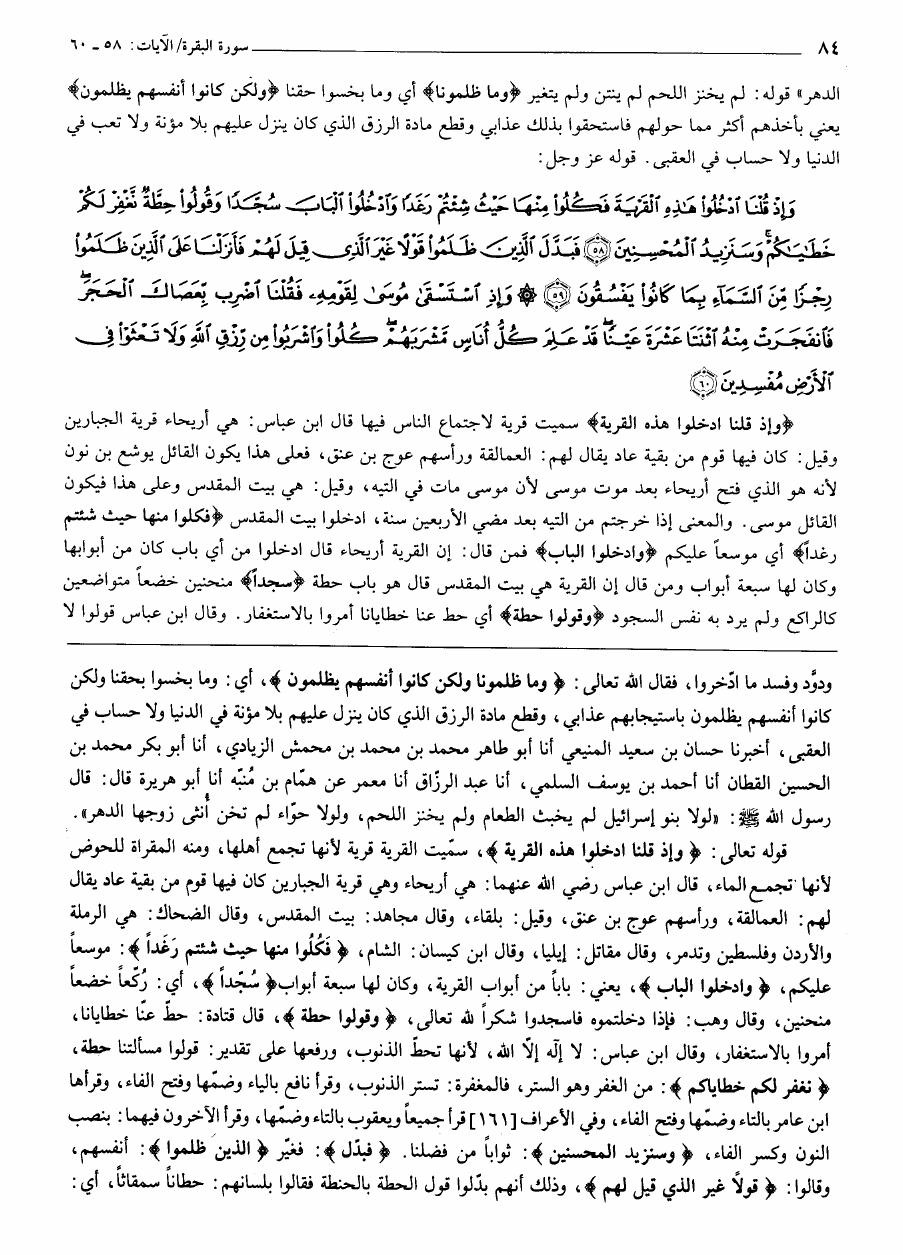 ٨٤ سورة البقرة/ الآيات: ٥٨ ـ ٦٠
الدهر» قوله: لم يخنز اللحم لم ينتن ولم يتغير ﴿وما ظلمونا﴾ أي وما بخسوا حقنا ﴿ولكن كانوا أنفسهم يظلمون﴾
يعني بأخذهم أكثر مما حولهم فاستحقوا بذلك عذابي وقطع مادة الرزق الذي كان ينزل عليهم بلا مؤنة ولا تعب في
الدنيا ولا حساب في العقبى. قوله عز وجل:
وَإِذْ قُلْنَا ٱدْخُلُوا۟ هَـٰذِهِ ٱلْقَرْيَةَ فَكُلُوا۟ مِنْهَا حَيْثُ شِئْتُمْ رَغَدًا وَٱدْخُلُوا۟ ٱلْبَابَ سُجَّدًا وَقُولُوا۟ حِطَّةٌ نَّغْفِرْ لَكُمْ
خَطَـٰيَـٰكُمْ ۚ وَسَنَزِيدُ ٱلْمُحْسِنِينَ ﴿٥٨﴾ فَبَدَّلَ ٱلَّذِينَ ظَلَمُوا۟ قَوْلًا غَيْرَ ٱلَّذِى قِيلَ لَهُمْ فَأَنزَلْنَا عَلَى ٱلَّذِينَ ظَلَمُوا۟
رِجْزًا مِّنَ ٱلسَّمَآءِ بِمَا كَانُوا۟ يَفْسُقُونَ ﴿٥٩﴾ ۞ وَإِذِ ٱسْتَسْقَىٰ مُوسَىٰ لِقَوْمِهِۦ فَقُلْنَا ٱضْرِب بِّعَصَاكَ ٱلْحَجَرَ ۖ
فَٱنفَجَرَتْ مِنْهُ ٱثْنَتَا عَشْرَةَ عَيْنًا ۖ قَدْ عَلِمَ كُلُّ أُنَاسٍ مَّشْرَبَهُمْ ۖ كُلُوا۟ وَٱشْرَبُوا۟ مِن رِّزْقِ ٱللَّهِ وَلَا تَعْثَوْا۟ فِى
ٱلْأَرْضِ مُفْسِدِينَ ﴿٦٠﴾
﴿وإذ قلنا ادخلوا هذه القرية﴾ سميت قرية لاجتماع الناس فيها قال ابن عباس: هي أريحاء قرية الجبارين
وقيل: كان فيها قوم من بقية عاد يقال لهم: العمالقة ورأسهم عوج بن عنق، فعلى هذا يكون القائل يوشع بن نون
لأنه هو الذي فتح أريحاء بعد موت موسى لأن موسى مات في التيه، وقيل: هي بيت المقدس وعلى هذا فيكون
القائل موسى. والمعنى إذا خرجتم من التيه بعد مضي الأربعين سنة، ادخلوا بيت المقدس ﴿فكلوا منها حيث شئتم
رغداً﴾ أي موسعاً عليكم ﴿وادخلوا الباب﴾ فمن قال: إن القرية أريحاء قال ادخلوا من أي باب كان من أبوابها
وكان لها سبعة أبواب ومن قال إن القرية هي بيت المقدس قال هو باب حطة ﴿سجداً﴾ منحنين خضعاً متواضعين
كالراكع ولم يرد به نفس السجود ﴿وقولوا حطة﴾ أي حط عنا خطايانا أمروا بالاستغفار. وقال ابن عباس قولوا لا
ودوّد وفسد ما ادّخروا، فقال الله تعالى: ﴿ وما ظلمونا ولكن كانوا أنفسهم يظلمون ﴾، أي: وما بخسوا بحقنا ولكن
كانوا أنفسهم يظلمون باستيجابهم عذابي، وقطع مادة الرزق الذي كان ينزل عليهم بلا مؤنة في الدنيا ولا حساب في
العقبى، أخبرنا حسان بن سعيد المنيعي أنا أبو طاهر محمد بن محمد بن محمش الزيادي، أنا أبو بكر محمد بن
الحسين القطان أنا أحمد بن يوسف السلمي، أنا عبد الرزّاق أنا معمر عن همّام بن مُنبّه أنا أبو هريرة قال: قال
رسول الله ﷺ: «لولا بنو إسرائيل لم يخبث الطعام ولم يخنز اللحم، ولولا حوّاء لم تخن أُنثى زوجها الدهر».
قوله تعالى: ﴿ وإذ قلنا ادخلوا هذه القرية ﴾، سمّيت القرية قرية لأنها تجمع أهلها، ومنه المقراة للحوض
لأنها تجمع الماء، قال ابن عباس رضي الله عنهما: هي أريحاء وهي قرية الجبارين كان فيها قوم من بقية عاد يقال
لهم: العمالقة، ورأسهم عوج بن عنق، وقيل: بلقاء، وقال مجاهد: بيت المقدس، وقال الضحاك: هي الرملة
والأردن وفلسطين وتدمر، وقال مقاتل: إيليا، وقال ابن كيسان: الشام، ﴿ فَكُلُوا منها حيث شئتم رَغَداً ﴾: موسعاً
عليكم، ﴿ وادخلوا الباب ﴾، يعني: باباً من أبواب القرية، وكان لها سبعة أبواب﴿ سُجّداً ﴾، أي: رُكّعاً خضعاً
منحنين، وقال وهب: فإذا دخلتموه فاسجدوا شكراً لله تعالى، ﴿ وقولوا حطة ﴾، قال قتادة: حطّ عنّا خطايانا،
أمروا بالاستغفار، وقال ابن عباس: لا إلٰه إلّا الله، لأنها تحطّ الذنوب، ورفعها على تقدير: قولوا مسألتنا حطة،
﴿ نغفر لكم خطاياكم ﴾: من الغفر وهو الستر، فالمغفرة: تستر الذنوب، وقرأ نافع بالياء وضمّها وفتح الفاء، وقرأها
ابن عامر بالتاء وضمّها وفتح الفاء، وفي الأعراف [١٦١] قرأ جميعاً ويعقوب بالتاء وضمّها، وقرأ الآخرون فيهما: بنصب
النون وكسر الفاء، ﴿ وسنزيد المحسنين ﴾: ثواباً من فضلنا. ﴿ فبدّل ﴾: فغيّر ﴿ الذين ظلموا ﴾: أنفسهم،
وقالوا: ﴿ قولاً غير الذي قيل لهم ﴾، وذلك أنهم بدّلوا قول الحطة بالحنطة فقالوا بلسانهم: حطاناً سمقاثاً، أي: